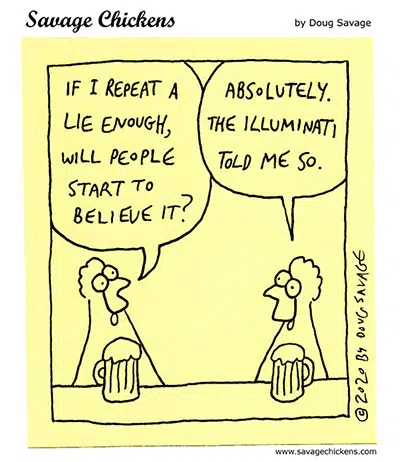 Savage Chickens
by Doug Savage
IF I REPEAT A
LIE ENOUGH,
WILL PEOPLE
START TO
BELIEVE IT?
ABSOLUTELY.
THE ILLUMINATI
TOLD ME SO.
©2020 BY DOUG SAVAGE
www.savagechickens.com